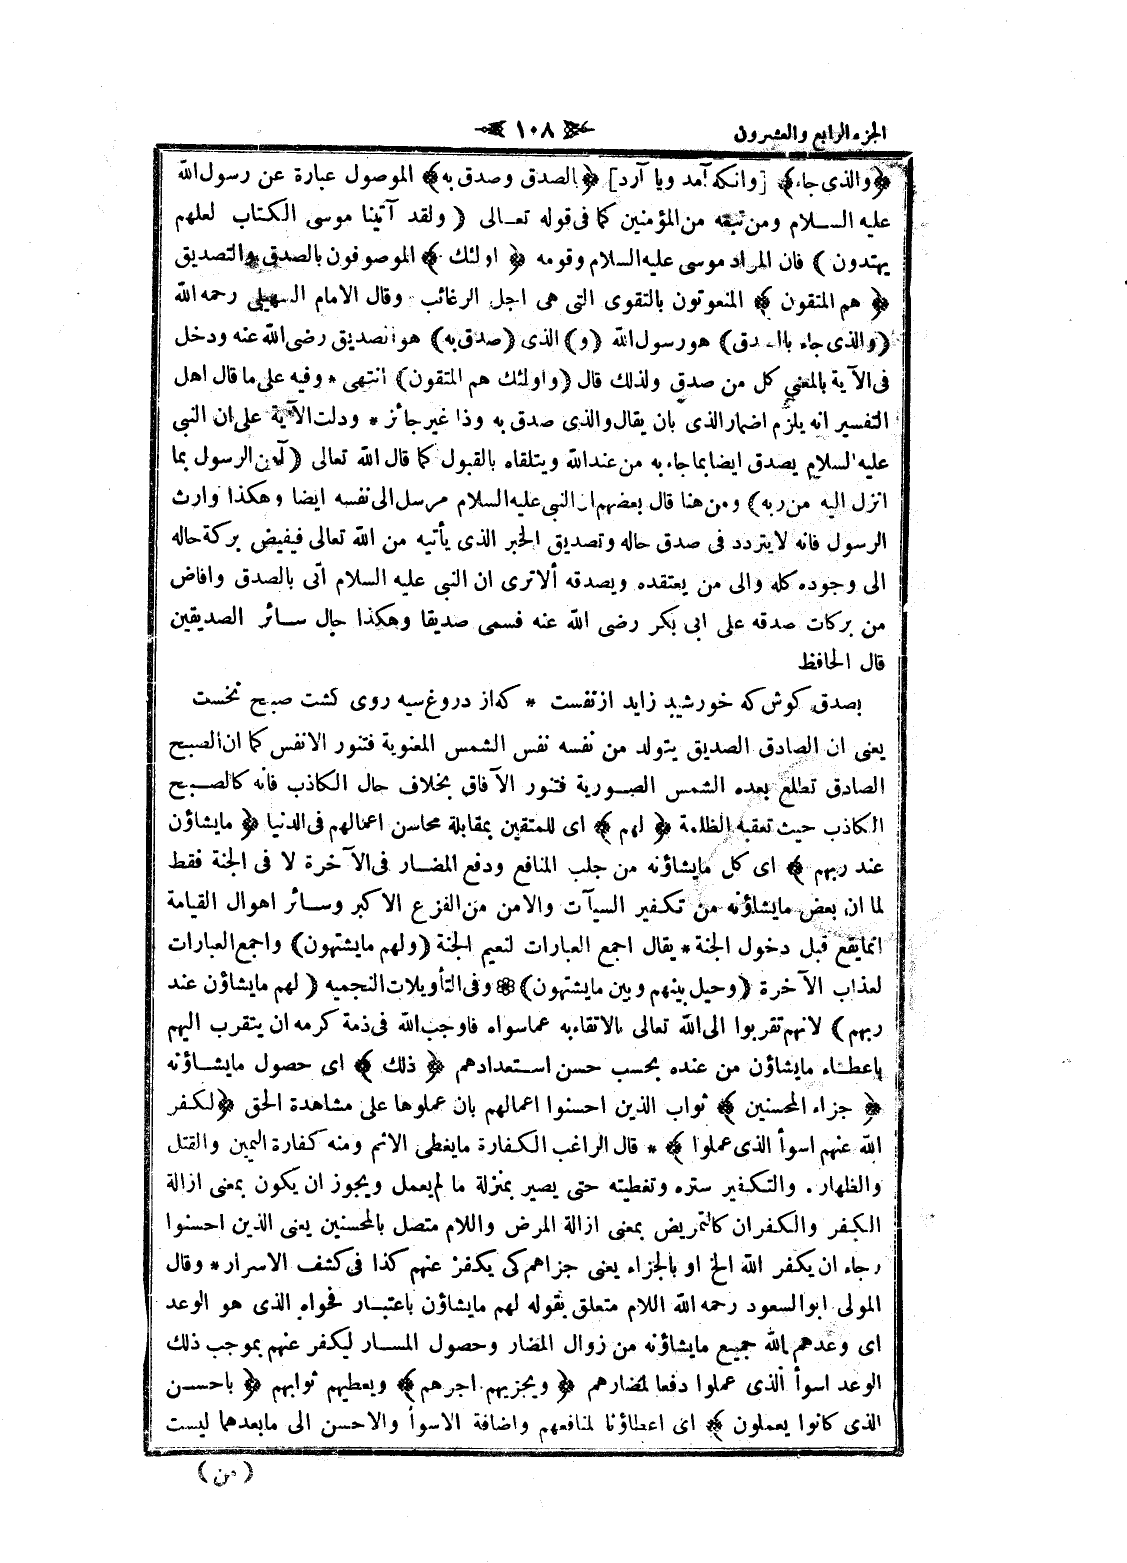 الجزء الرابع والعشرون
١٠٨
﴿والذى جاء﴾ [وانكه آمد ويا آرد] ﴿بالصدق وصدق به﴾ الموصول عبارة عن رسول الله
عليه السلام ومن تبعه من المؤمنين كما فى قوله تعالى ( ولقد آتينا موسى الكتاب لعلهم
يهتدون ) فان المراد موسى عليه السلام وقومه ﴿ اولئك ﴾ الموصوفون بالصدق والتصديق
﴿ هم المتقون ﴾ المنعوتون بالتقوى التى هى اجل الرغائب وقال الامام السهيلى رحمه الله
(والذى جاء بالصدق) هو رسول الله (و) الذى (صدق به) هو الصديق رضى الله عنه ودخل
فى الآية بالمعنى كل من صدق ولذلك قال (واولئك هم المتقون) انتهى * وفيه على ما قال اهل
التفسير انه يلزم اضمار الذى بان يقال والذى صدق به وذا غير جائز * ودلت الآية على ان النبى
عليه السلام يصدق ايضا بما جاء به من عند الله ويتلقاه بالقبول كما قال الله تعالى (آمن الرسول بما
انزل اليه من ربه) ومن هنا قال بعضهم ان النبى عليه السلام مرسل الى نفسه ايضا وهكذا وارث
الرسول فانه لا يتردد فى صدق حاله وتصديق الخبر الذى يأتيه من الله تعالى فيفيض بركة حاله
الى وجوده كله والى من يعتقده ويصدقه ألا ترى ان النبى عليه السلام اتى بالصدق وافاض
من بركات صدقه على ابى بكر رضى الله عنه فسمى صديقا وهكذا حال سائر الصديقين
قال الحافظ
بصدق كوش كه خورشيد زايد از نفست * كه از دروغ سيه روى كشت صبح نخست
يعنى ان الصادق الصديق يتولد من نفسه نفس الشمس المعنوية فتنور الانفس كما ان الصبح
الصادق تطلع بعده الشمس الصورية فتنور الآفاق بخلاف حال الكاذب فانه كالصبح
الكاذب حيث تعقبه الظلمة ﴿ لهم ﴾ اى للمتقين بمقابلة محاسن اعمالهم فى الدنيا ﴿ ما يشاؤن
عند ربهم ﴾ اى كل ما يشاؤنه من جلب المنافع ودفع المضار فى الآخرة لا فى الجنة فقط
لما ان بعض ما يشاؤنه من تكفير السيآت والامن من الفزع الاكبر وسائر اهوال القيامة
انما يقع قبل دخول الجنة * يقال اجمع العبارات لنعيم الجنة (ولهم ما يشتهون) واجمع العبارات
لعذاب الآخرة (وحيل بينهم وبين ما يشتهون) ❁ وفى التأويلات النجميه ( لهم ما يشاؤن عند
ربهم ) لانهم تقربوا الى الله تعالى بالاتقاء به عما سواه فاوجب الله فى ذمة كرمه ان يتقرب اليهم
باعطاء ما يشاؤن من عنده بحسب حسن استعدادهم ﴿ ذلك ﴾ اى حصول ما يشاؤنه
﴿ جزاء المحسنين ﴾ ثواب الذين احسنوا اعمالهم بان عملوها على مشاهدة الحق ﴿ليكفر
الله عنهم اسوأ الذى عملوا ﴾ * قال الراغب الكفارة ما يغطى الاثم ومنه كفارة اليمين والقتل
والظهار . والتكفير ستره وتغطيته حتى يصير بمنزلة ما لم يعمل ويجوز ان يكون بمعنى ازالة
الكفر والكفران كالتمريض بمعنى ازالة المرض واللام متصل بالمحسنين يعنى الذين احسنوا
رجاء ان يكفر الله الخ او بالجزاء يعنى جزاهم كى يكفر عنهم كذا فى كشف الاسرار * وقال
المولى ابو السعود رحمه الله اللام متعلق بقوله لهم ما يشاؤن باعتبار فحواه الذى هو الوعد
اى وعدهم الله جميع ما يشاؤنه من زوال المضار وحصول المسار ليكفر عنهم بموجب ذلك
الوعد اسوأ الذى عملوا دفعا لمضارهم ﴿ ويجزيهم اجرهم﴾ ويعطيهم ثوابهم ﴿ باحسن
الذى كانوا يعملون ﴾ اى اعطاؤنا لمنافعهم واضافة الاسوأ والاحسن الى ما بعدها ليست
( من )